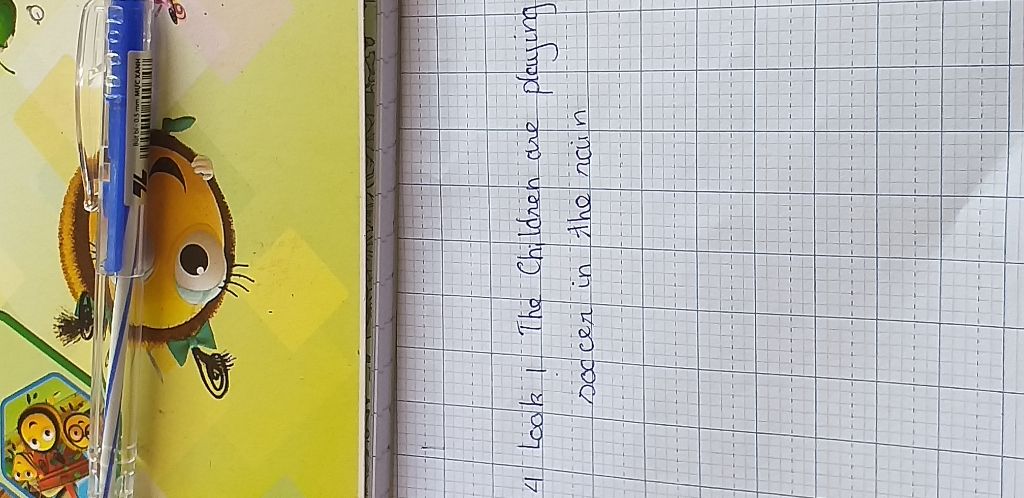 4) Look ! The Children are playing
soccer in the rain
Bút bi : 0.5 mm MỰC XANH
TL